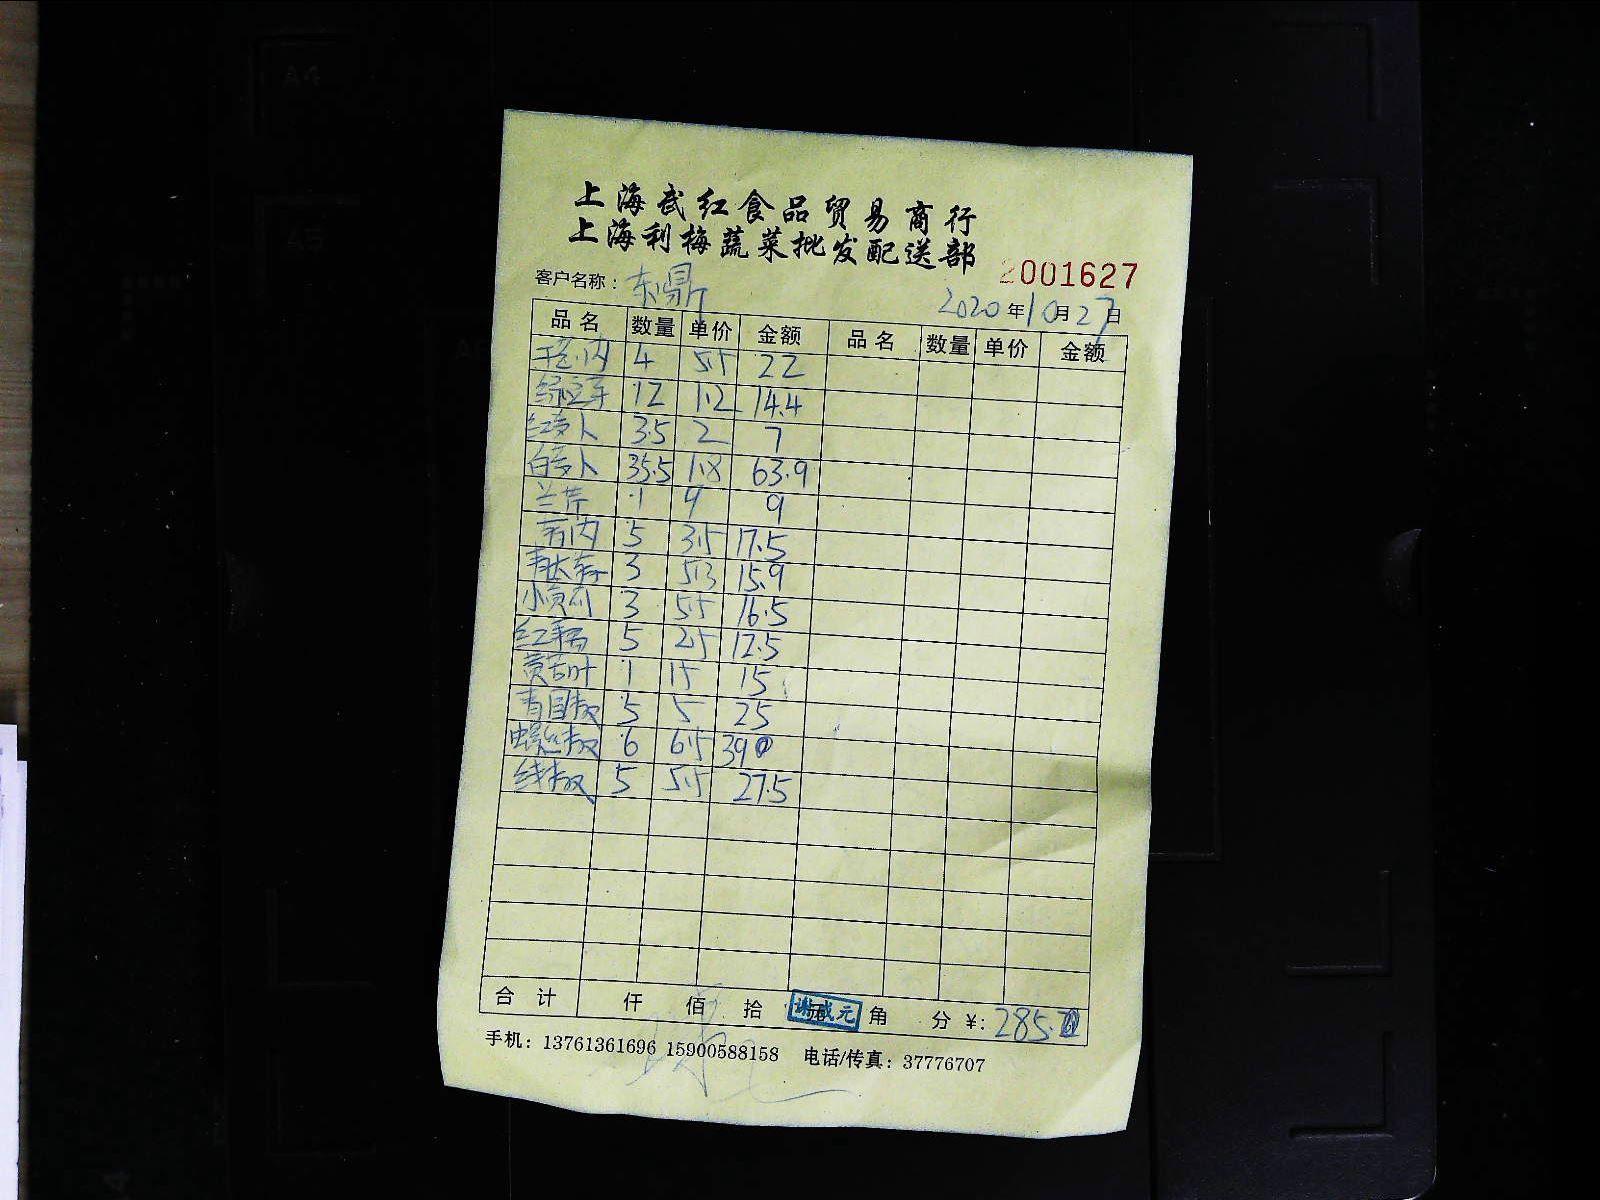 上海武红食品贸易商行
上海利梅蔬菜批发配送部
2001627
客户名称： 东鼎
2020年10月27日
品名 数量 单价 金额 品名 数量 单价 金额
4 5.5 22
绿豆芽 12 1.2 14.4
红萝卜 3.5 2 7
白萝卜 35.5 1.8 63.9
兰芹 1 9 9
莴内 5 3.5 17.5
3 5.3 15.9
小黄瓜 3 5.5 16.5
红薯 5 2.5 12.5
黄芽叶 1 15 15
青圆椒 5 5 25
螺丝椒 6 6.5 39
线椒 5 5.5 27.5
合计 仟 佰 拾 元 角 分 ¥: 285.7
手机：13761361696 15900588158 电话/传真：37776707
A4
A5